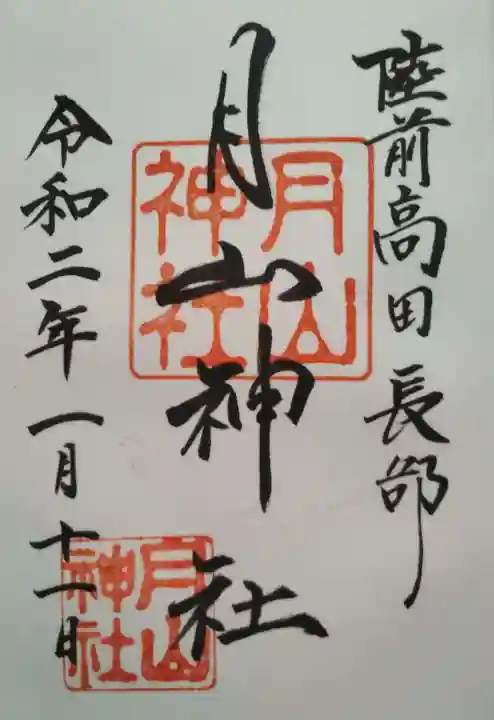 陸前高田長部
月山神社
令和二年一月十一日
月山
神社
月山
神社